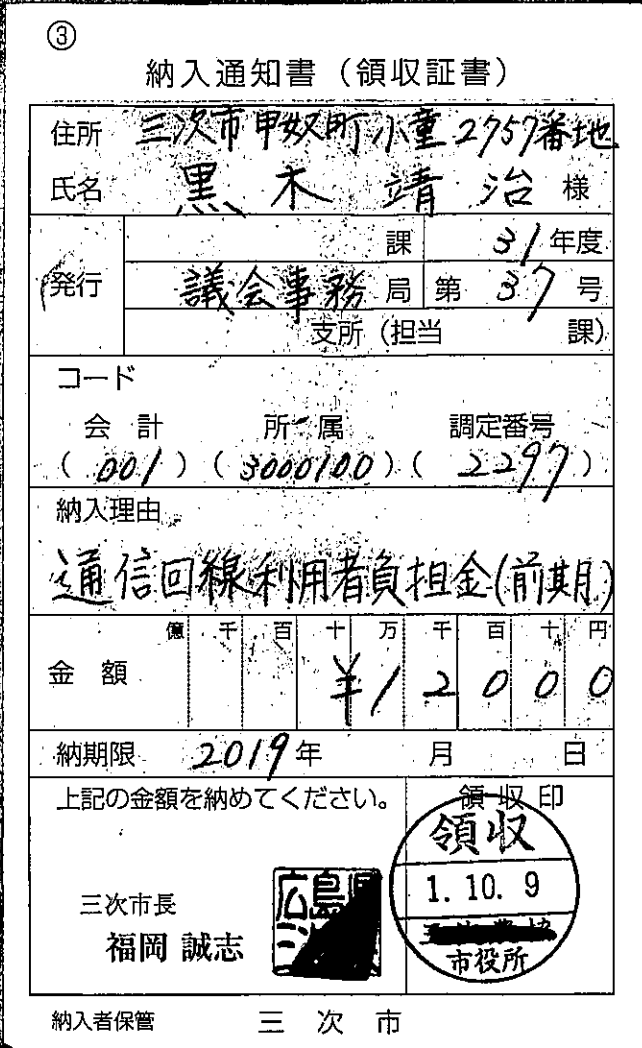 ③
納入通知書（領収証書）
住所 三次市甲奴町小童2757番地
氏名 黒木靖治 様
発行 課 31年度
議会事務局 第37号
支所（担当 課）
コード
会計 所属 調定番号
(001) (3000100) (2297)
納入理由
通信回線利用者負担金(前期)
億 千 百 十 万 千 百 十 円
金額 ¥12000
納期限 2019年 月 日
上記の金額を納めてください。 領収印
領収
1.10.9
市役所
三次市長
福岡 誠志
納入者保管 三次市